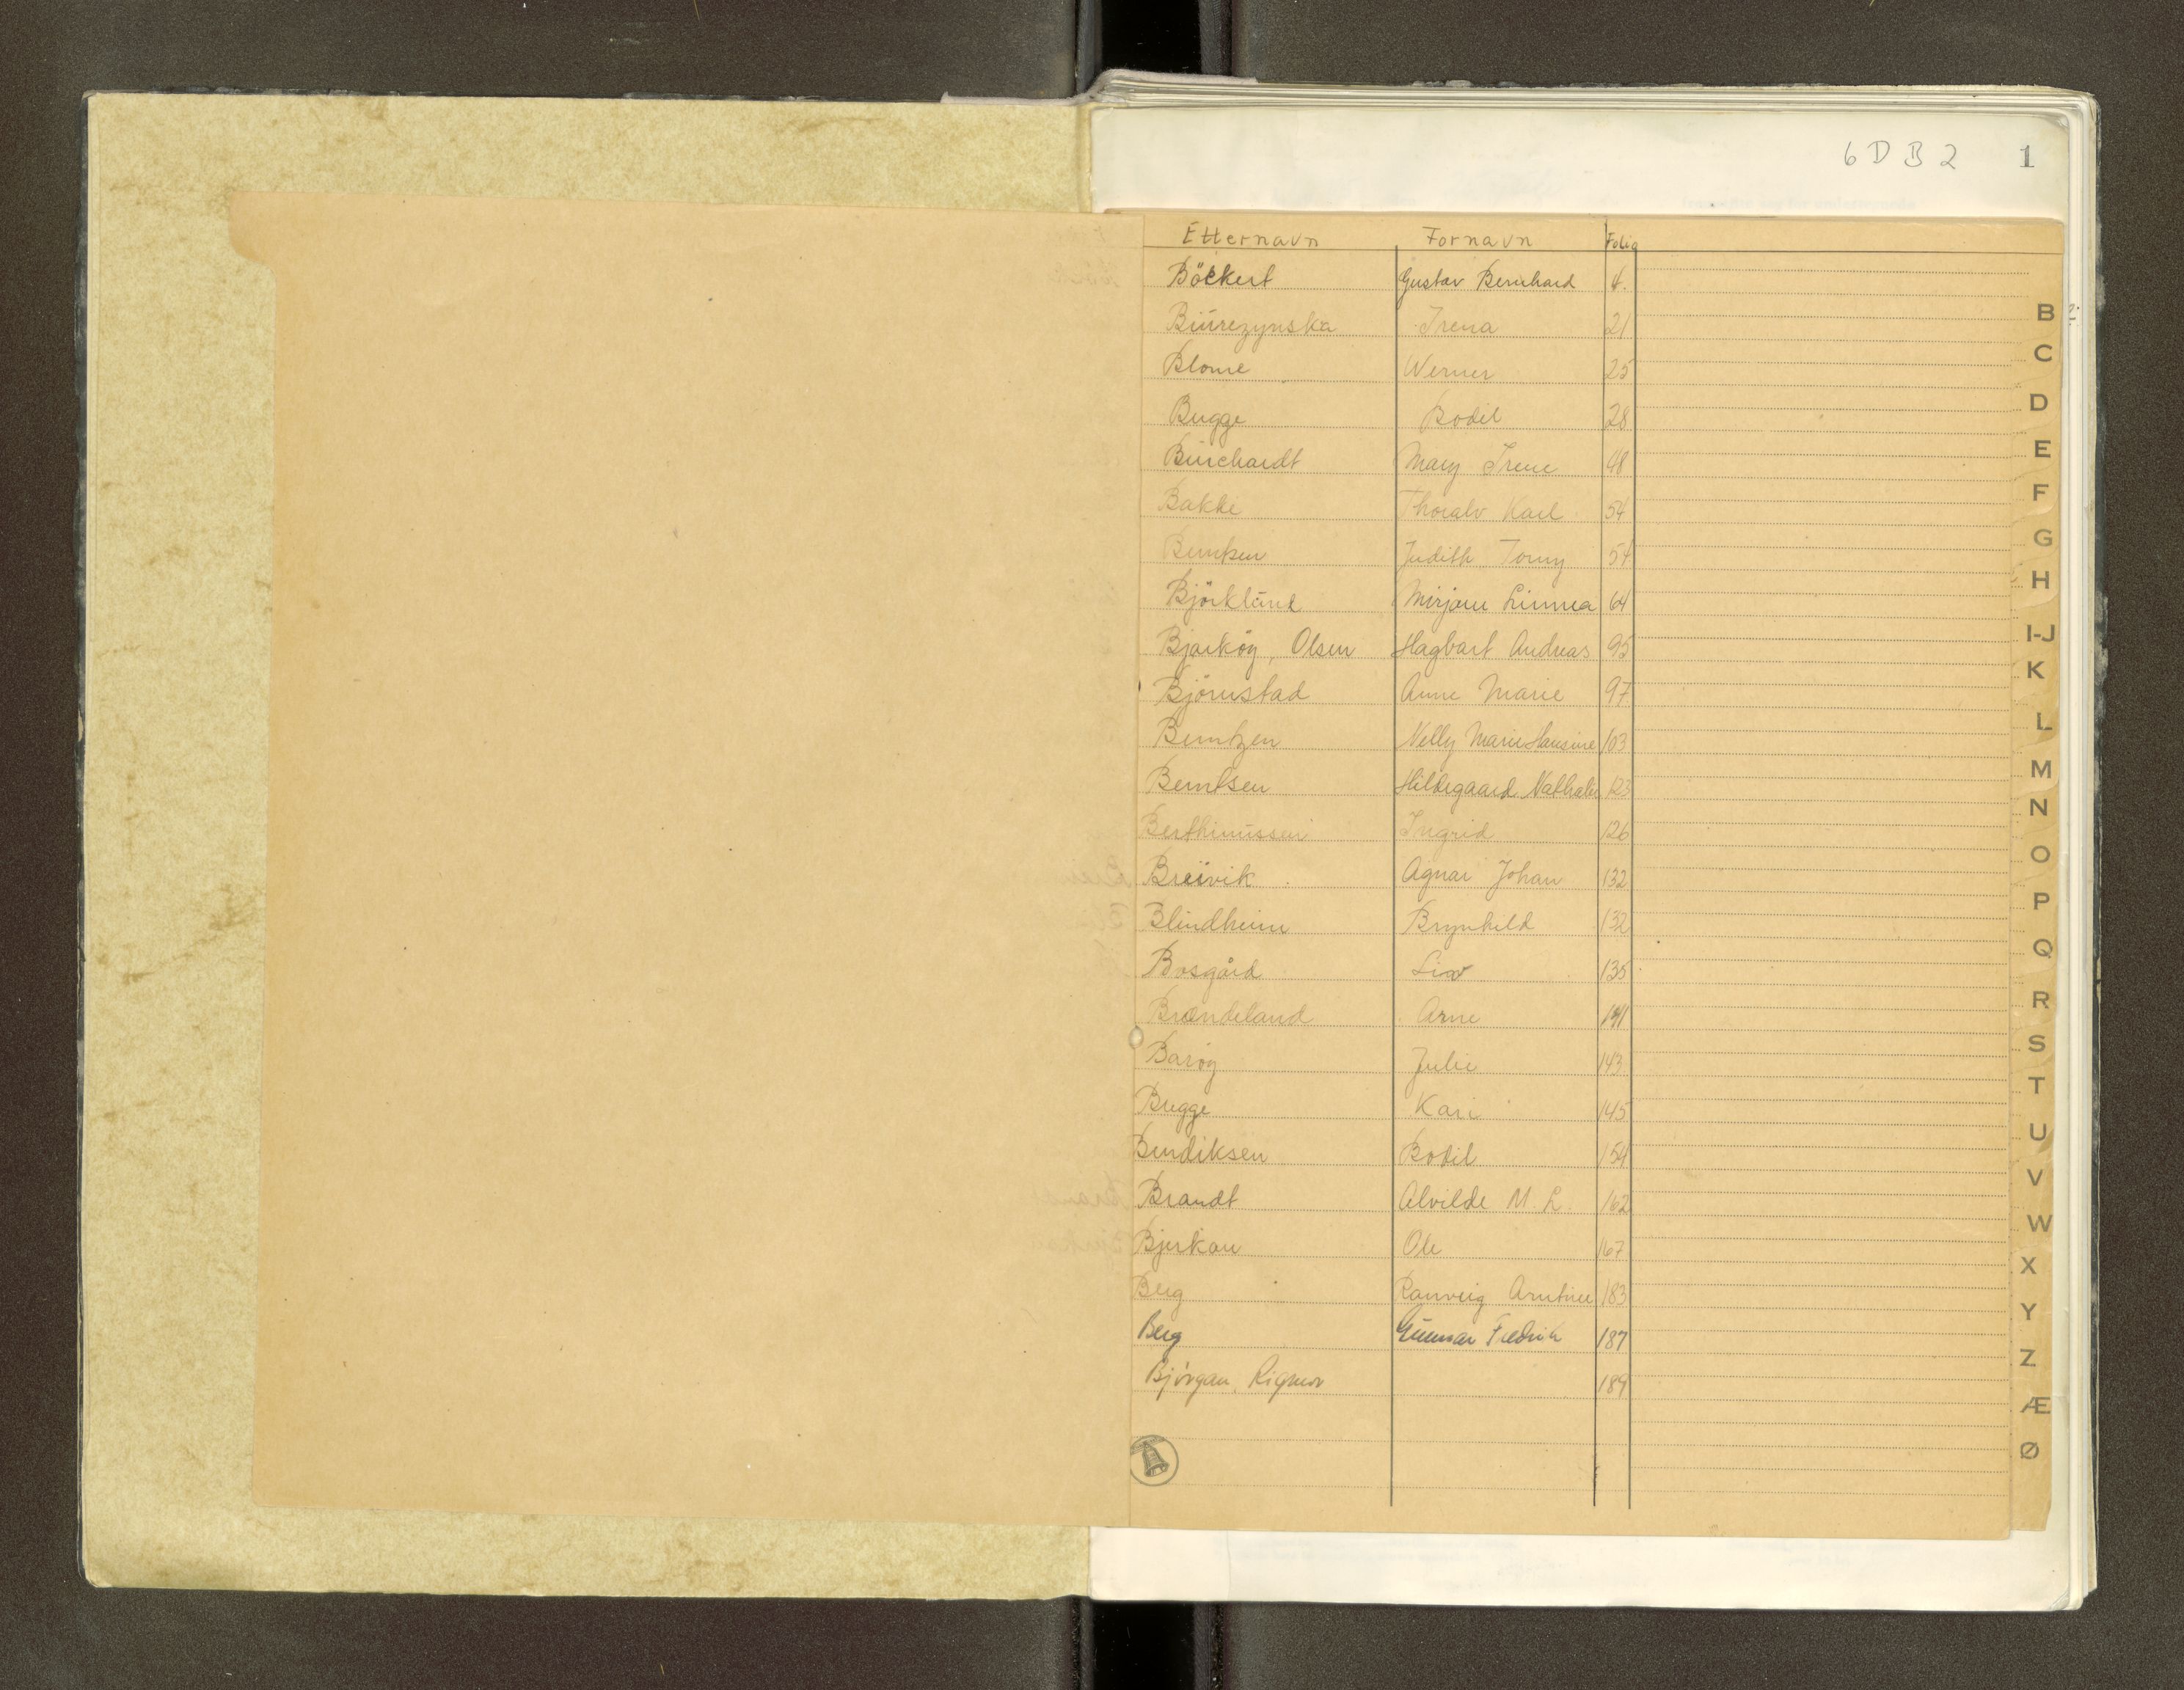 6 D B 2 1
Etternavn Fornavn Folio
Böckert Gustav Bernhard 4.
Biurezynska Irena 21
Blome Werner 25
Bugge Bodil 28
Burchardt Mary Irene 48
Bakke Thoralv Karl 54
Berntsen Judith Tonny 54
Björklund Mirjam Linnea 64
Bjarköy, Olsen Hagbart Andreas 95
Björnstad Anne Marie 97
Berntzen Nelly Marie Hansine 103
Berntsen Hildegaard Nathalie 123
Berthinussen Ingrid 126
Breivik Agnar Johan 132
Blindheim Brynhild 132
Bosgård Liv 135
Brændeland Arne 141
Baröy Julie 143
Bugge Kari 145
Bendiksen Bodil 154
Brandt Alvilde M. L. 162
Bjerkan Ole 167
Berg Ranveig Arntine 183
Berg Gunnar Fredrik 187
Björgan, Rigmor 189
B
C
D
E
F
G
H
I-J
K
L
M
N
O
P
Q
R
S
T
U
V
W
X
Y
Z
Æ
Ø